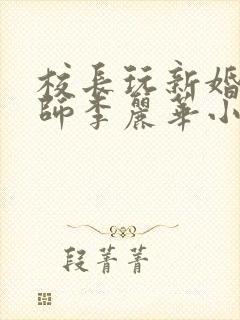 校長玩新婚
師李麗華小
段菁菁